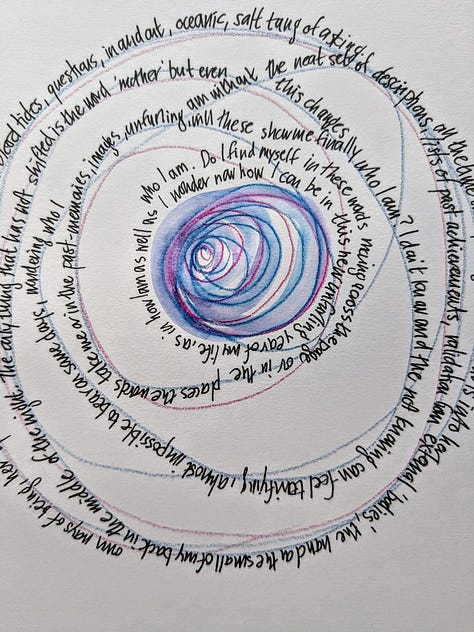 I wonder now how I can be in this new unfurling year of my life as in how I am as well as
who I am. Do I find myself in these words moving across the page or in the places the words take me or in the
past-memories, images, unfurling, will these show me finally who I am? I don't know and the not knowing can feel terrifying, almost impossible to bear on some days, wondering who I
am without the neat set of descriptions, lists of past achievements, validation from external bodies, the hand at the small of my back in the middle of the night the only thing that has not shifted is the word 'mother' but even
this changes
own ways of being,
tides, questions, oceanic, salt tang of casting off all the